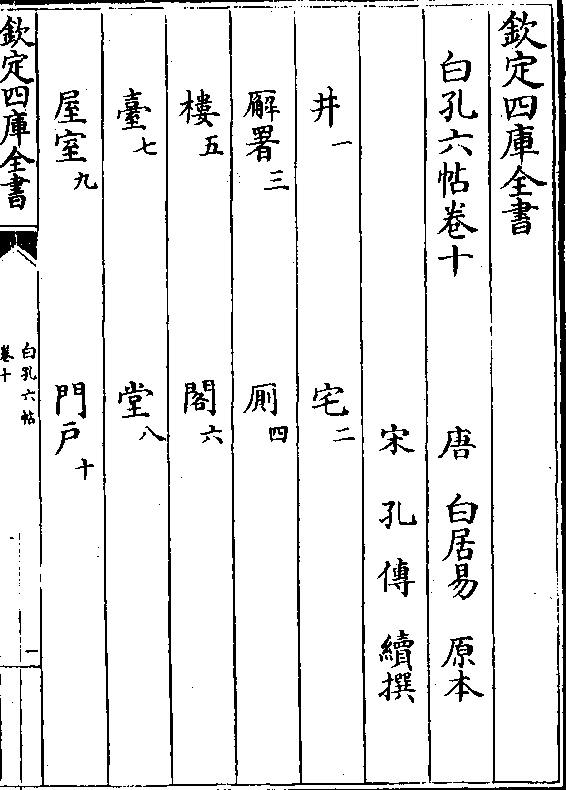 欽定四庫全書
白孔六帖卷十
唐 白居易 原本
宋 孔傳 續撰
井一 宅二
廨署三 厠四
樓五 閣六
臺七 堂八
屋室九 門戶十
欽定四庫全書
白孔六帖
卷十
一